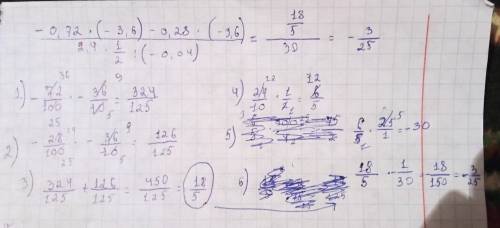 -0,72 * (-3,6) - 0,28 : (-3,6) / 2,4 * 1/2 : (-0,04) = 18/5 / 30 = - 3/25
1) - 72/100 · - 36/10 = 324/125
2) - 28/100 · - 36/10 = 126/125
3) 324/125 + 126/125 = 450/125 = 18/5
4) 24/10 · 1/2 = 6/5
5) 6/5 · 25/1 = -30
6) 18/5 · - 1/30 = 18/150 = - 3/25